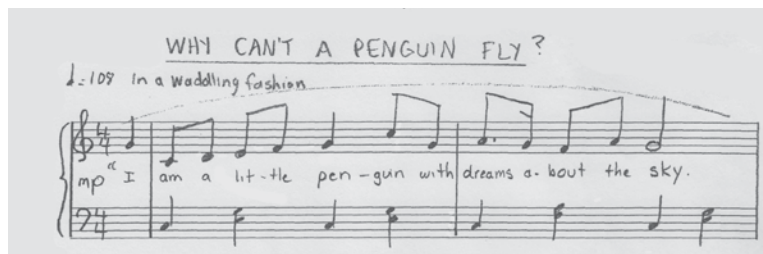 WHY CAN'T A PENGUIN FLY?
♩=108 In a waddling fashion
4/4
mp "I am a lit-tle pen-guin with dreams a-bout the sky.